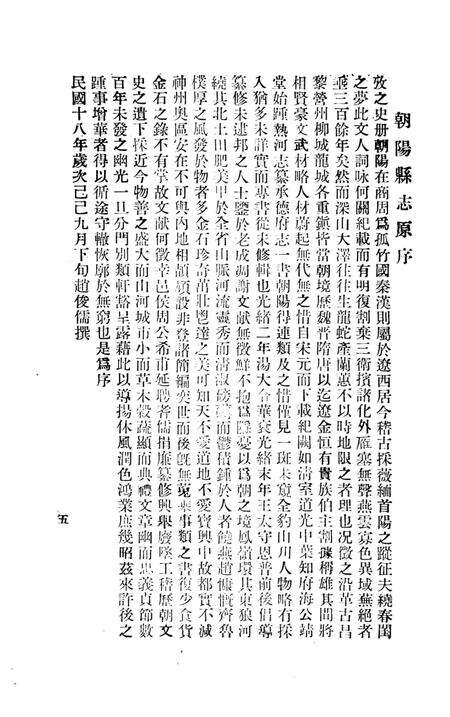 朝陽縣志原序
攷之史册朝陽在商周爲孤竹國秦漢則屬於遼西居今稽古採薇緬首陽之蹤征夫繞春閨
之夢此文人詞咏何關紀載而有明復割棄三衛擯諸化外雁塞無聲燕雲寡色異域蕪絕者
垂三百餘年矣然而深山大澤往往生龍蛇產蘭蕙不以時地限之者理也况徵之沿革古昌
黎營州柳城龍城各重鎮皆當朝境歷魏晉隋唐以迄遼金恒有貴族伯主割據稱雄其間將
相賢豪文武材略人材蔚起無代無之惜自宋元而下載紀闕如清室道光中葉知府海公靖
堂始踵熱河志纂承德府志一書朝陽得連類及之惜僅見一斑未窺全豹山川人物略有採
入猶多未詳實而專書從未修輯也光緒二年湯大令華衮光緒末年王太守恩普前後倡導
纂修未逮邦之人士鑒於老成凋謝文獻無徵鮮不抱爲隱憂以爲朝之境鳳嶺環其東狼河
繞其北土田肥美甲於全省山脈河流靈秀而清淑磅礴而鬱積鍾於人者饒燕趙慷慨齊魯
樸厚之風發於物者多金石珍奇茁壯鬯達之美可知天不愛道地不愛寶興中故都實不減
神州奧區安在不可與內地相頡頏設非登諸簡編奕世而後慨無蒐集事類之書復少食貨
金石之錄不有掌故文獻何徵幸邑侯周公希甫延聘耆儒捐廉纂修興舉廢墜工稽歷朝文
史之遺下採近今物善之盛大而山河城市小而草木穀蔬顯而典禮文章幽而忠義貞節數
百年未發之幽光一旦分門別類軒豁呈露藉此以導揚休風潤色鴻業庶幾昭茲來許後之
踵事增華者得以循途守轍恢廓於無窮也是爲序
民國十八年歲次己巳九月下旬趙俊儒撰
五